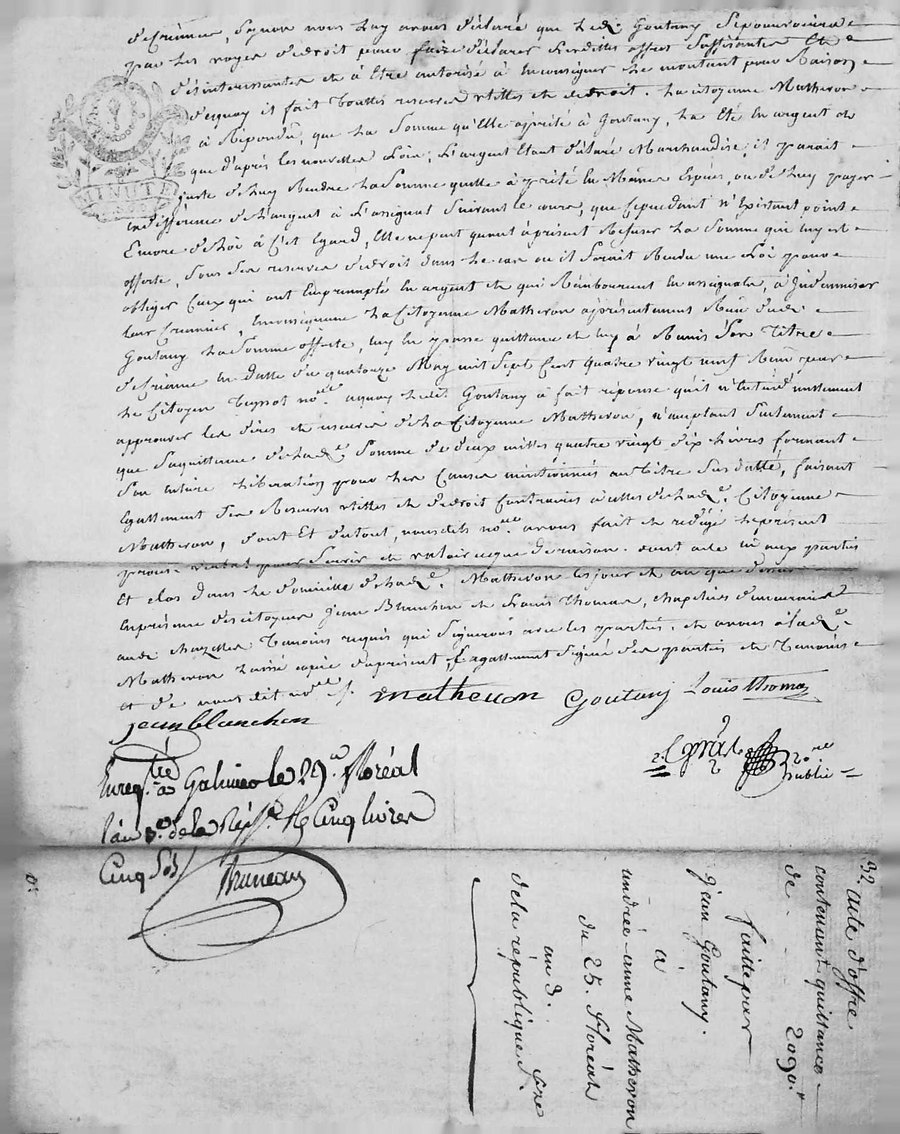 par les voyes de droit pour faire déclarer offres suffisantes et
désinteressantes et à être autorisé à consigner le montant pour Raison
dequoy il fait touttes reserves utilles et de droit. La citoyenne Matheron
à Répondû, que La Somme qu'elle à prêté à Goutany, La été en argent et
que d'après les nouvelles Loix, L'argent étant déclaré Marchandise, il parait
juste de luy Rendre La Somme quelle à prêté en Mêmes Espèces, ou de luy payer
indifférence de L'argent à L'assignat Suivant le cours, que cependant n'Existant point
Encore de Loi à cet Egard, Elle ne peut quant à présent Refuser La Somme qui luy est
offerte, Sous Ses reserves de droit dans le cas ou il Seroit Rendu une Loi pour
obliger Ceux qui ont Emprunté en argent et qui Remboursent en assignats, à Indemniser
leur Créancier, La Citoyenne Matheron à présentement Reçu dudt
Goutany La Somme offerte, luy en passe quittance et luy à Remis Son Titre
de Créance en datte du quatorze May mil Sept Cent quatre vingt neuf Reçu par
Le Citoyen not.re aquoy Ledit Goutany à fait réponse quil n'entend nullement
approuver les dires et reserves de La Citoyenne Matheron, n'acceptant Seulement
que Sa quittance de Ladt. Somme de deux milles quatre vingt dix Livres formant
Son entière Libération pour les Causes mentionnées au titre Susdatté, faisant
Egallement Ses Reserves utilles et de droit Contraires à celles de Ladt. Citoyenne
Matheron, dont Et du tout, nousdit not.re avons fait et redigé Le présent
verbal pour Servir et valoir ceque de raison. dont acte aux parties
Et clos dans Le domicille de Ladt. Matheron Les jour et an que dessus
En présence des citoyens Jean Blanchon et Louis Thomas, chapeliers
audt. Temoins requis qui Signeront avec les parties. et avons à Ladt.
Matheron Laissé copie du présent, Egallement Signée des parties et Temoins
et de nous dit not.re
matheron Goutany Louis thomas
jean blanchon
not.re
public
Enreg.tré à Galmier le 29 floréal
l'an 3.e de la Rép. R cinq livres
Cinq Sols
Bruneau
32. acte d'offre
contenant quittance
de - - - 2090.#
faitte par
jean Goutany.
à
andrée-anne Matheron
du 25. floréal
an 3. 
de la république f.se